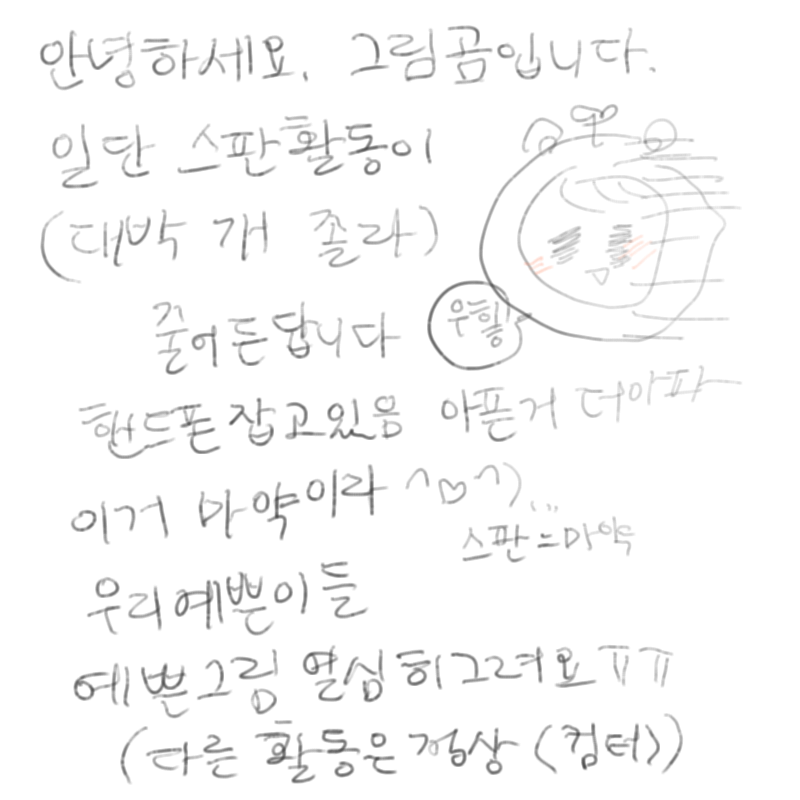 안녕하세요. 그림곰입니다.
일단 스판활동이
(대박 개 졸라)
줄어든답니다
우힝!
핸드폰잡고있음 아픈거 더아파
이거 마약이라 ^♡^)...
스판=마약
우리예쁜이들
예쁜그림 열심히그려요ㅠㅠ
(다른 활동은 정상 <컴터>)